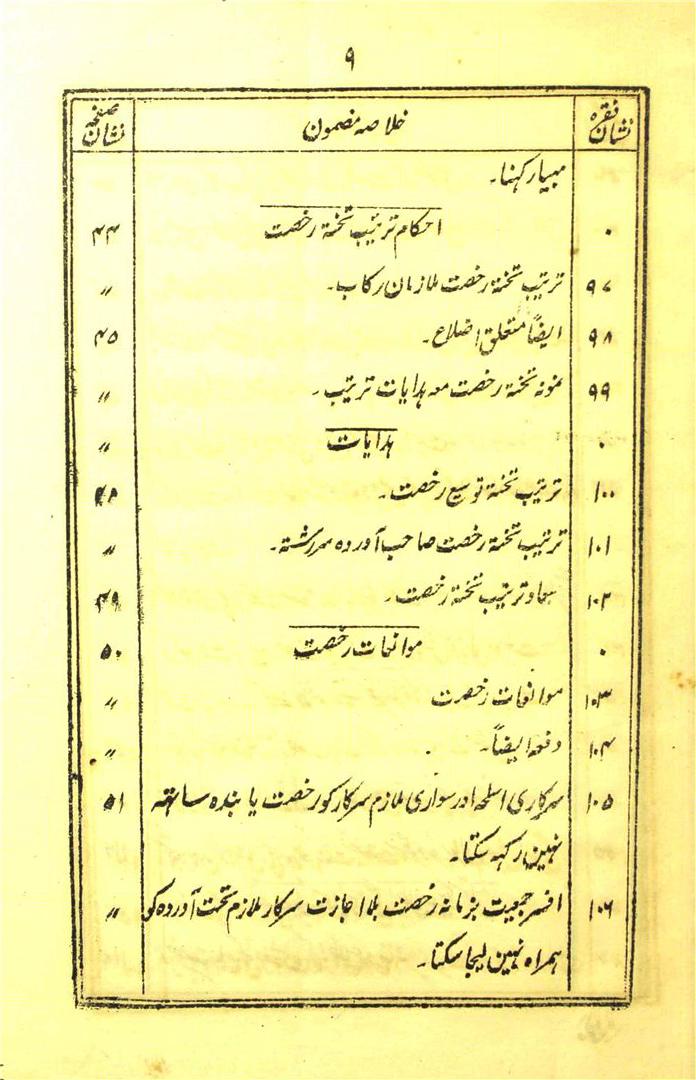 ۹
نشان فقرہ | خلاصہ مضمون | نشان صفحہ
مہیا رکہنا۔
۰ | احکام ترتیب تختہ رخصت | ۴۴
۹۷ | ترتیب تختہ رخصت ملازمان رکاب۔ | 〃
۹۸ | ایضاً متعلق اضلاع۔ | ۴۵
۹۹ | نمونہ تختہ رخصت معہ ہدایات ترتیب۔ | 〃
۰ | ہدایات | 〃
۱۰۰ | ترتیب تختہ توسیع رخصت۔ | ۴۸
۱۰۱ | ترتیب تختہ رخصت صاحب آوردہ سررشتہ۔ | 〃
۱۰۲ | میعاد ترتیب تختہ رخصت۔ | ۴۹
۰ | موانعات رخصت | ۵۰
۱۰۳ | موانعات رخصت | 〃
۱۰۴ | دفعہ ایضاً۔ | 〃
۱۰۵ | سرکاری اسلحہ اور سواری ملازم سرکار کو رخصت یابندہ ساتھ | ۵۱
نہین رکہہ سکتا۔
۱۰۶ | افسر جمعیت بزمانہ رخصت بلا اجازت سرکار ملازم تحت آوردہ کو | 〃
ہمراہ نہین لیجا سکتا۔